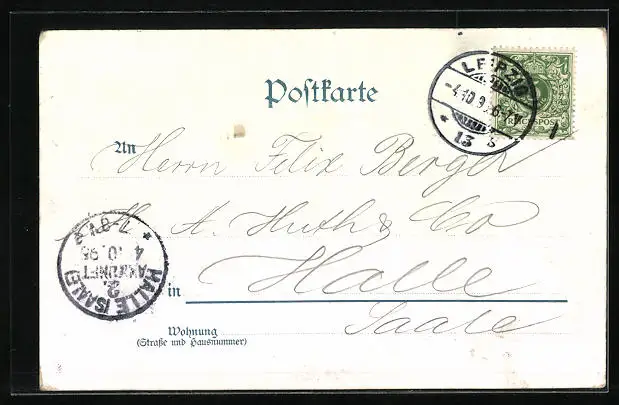 Postkarte
LEIPZIG
-4.10.9
13
REICHSPOST
An
Herrn Felix Berger
A. Huth & Co
in Halle
Saale
Wohnung
(Straße und Hausnummer)
HALLE (SAALE)
2.
ANKUNFT
4 10. 98
7-8